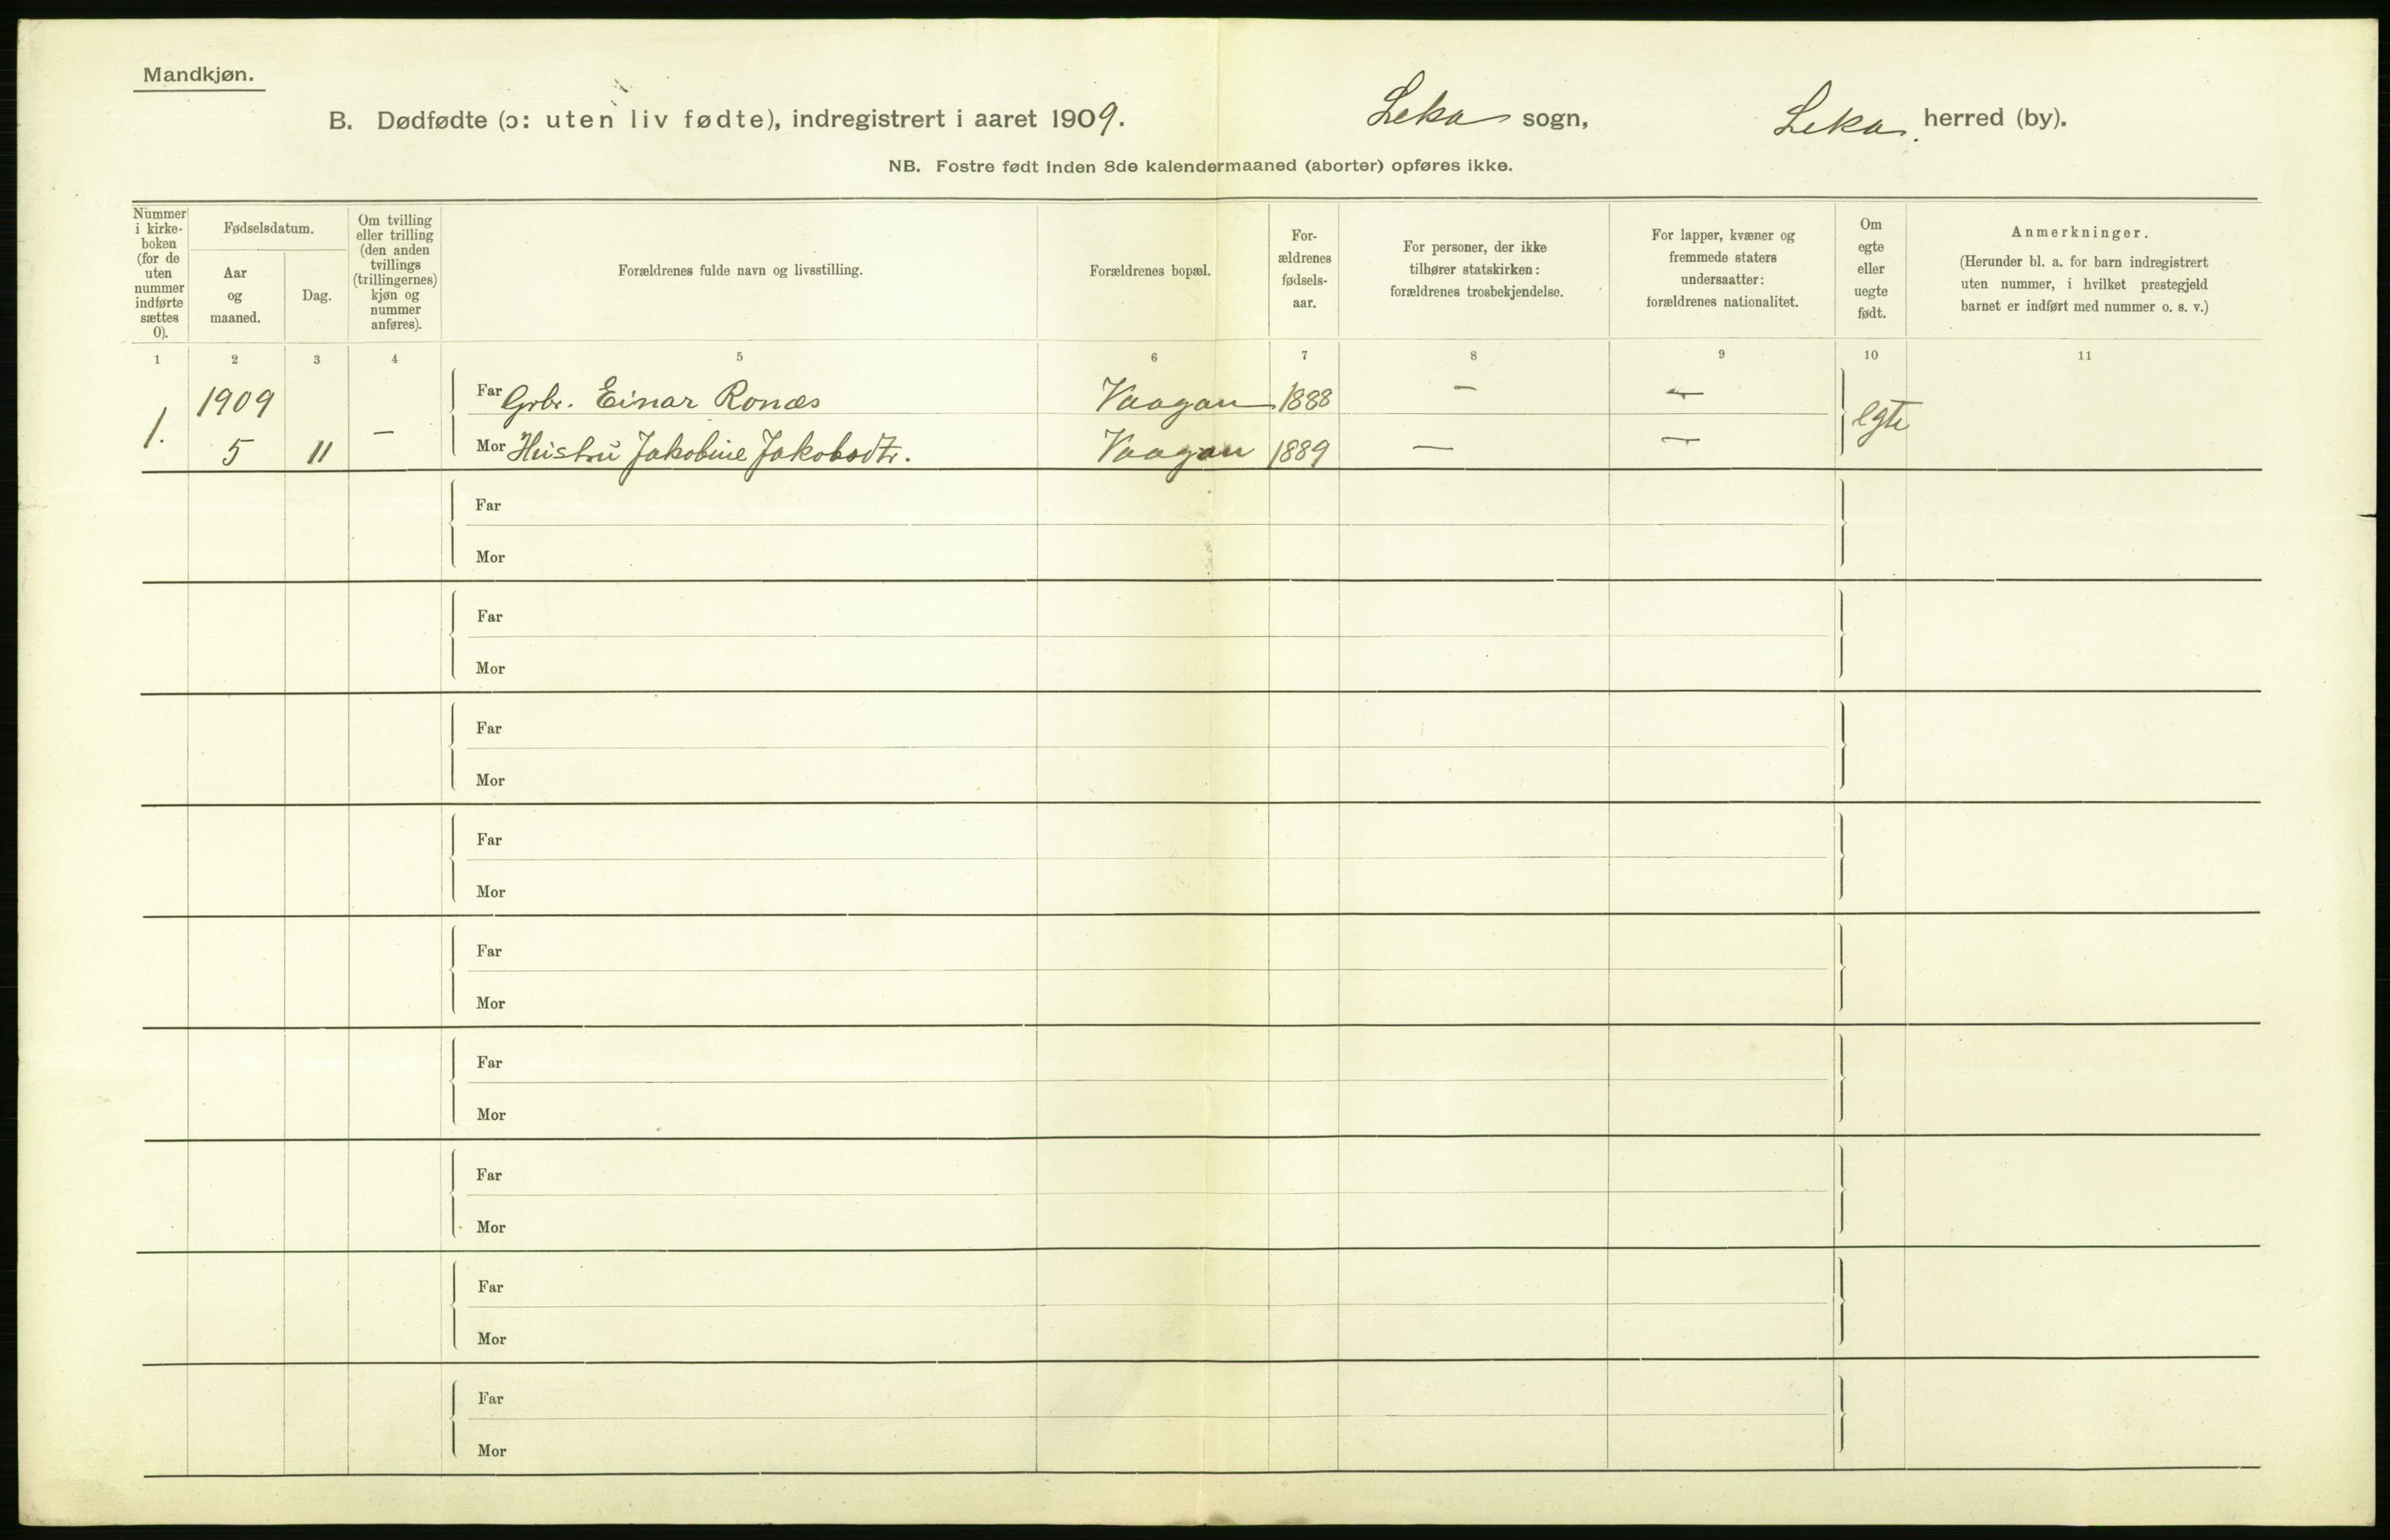 Mandkjøn.
B. Dødfødte (ɔ: uten liv fødte), indregistrert i aaret 1909. Leka sogn, Leka. herred (by).
NB. Fostre født inden 8de kalendermaaned (aborter) opføres ikke.
Nummer i kirke-boken (for de uten nummer indførte sættes 0).
Fødselsdatum.
Aar og maaned.
Dag.
Om tvilling eller trilling (den anden tvillings (trillingernes) kjøn og nummer anføres).
Forældrenes fulde navn og livsstilling.
Forældrenes bopæl.
For-ældrenes fødsels-aar.
For personer, der ikke tilhører statskirken: forældrenes trosbekjendelse.
For lapper, kvæner og fremmede staters undersaatter: forældrenes nationalitet.
Om egte eller uegte født.
Anmerkninger.
(Herunder bl. a. for barn indregistrert uten nummer, i hvilket prestegjeld barnet er indført med nummer o. s. v.)
1 2 3 4 5 6 7 8 9 10 11
1909 Far Grbr. Einar Ronæs Vaagan 1888 — —
1. — egte
5 11 Mor Hustru Jakobine Jakobsdtr. Vaagan 1889 — —
Far
Mor
Far
Mor
Far
Mor
Far
Mor
Far
Mor
Far
Mor
Far
Mor
Far
Mor
Far
Mor